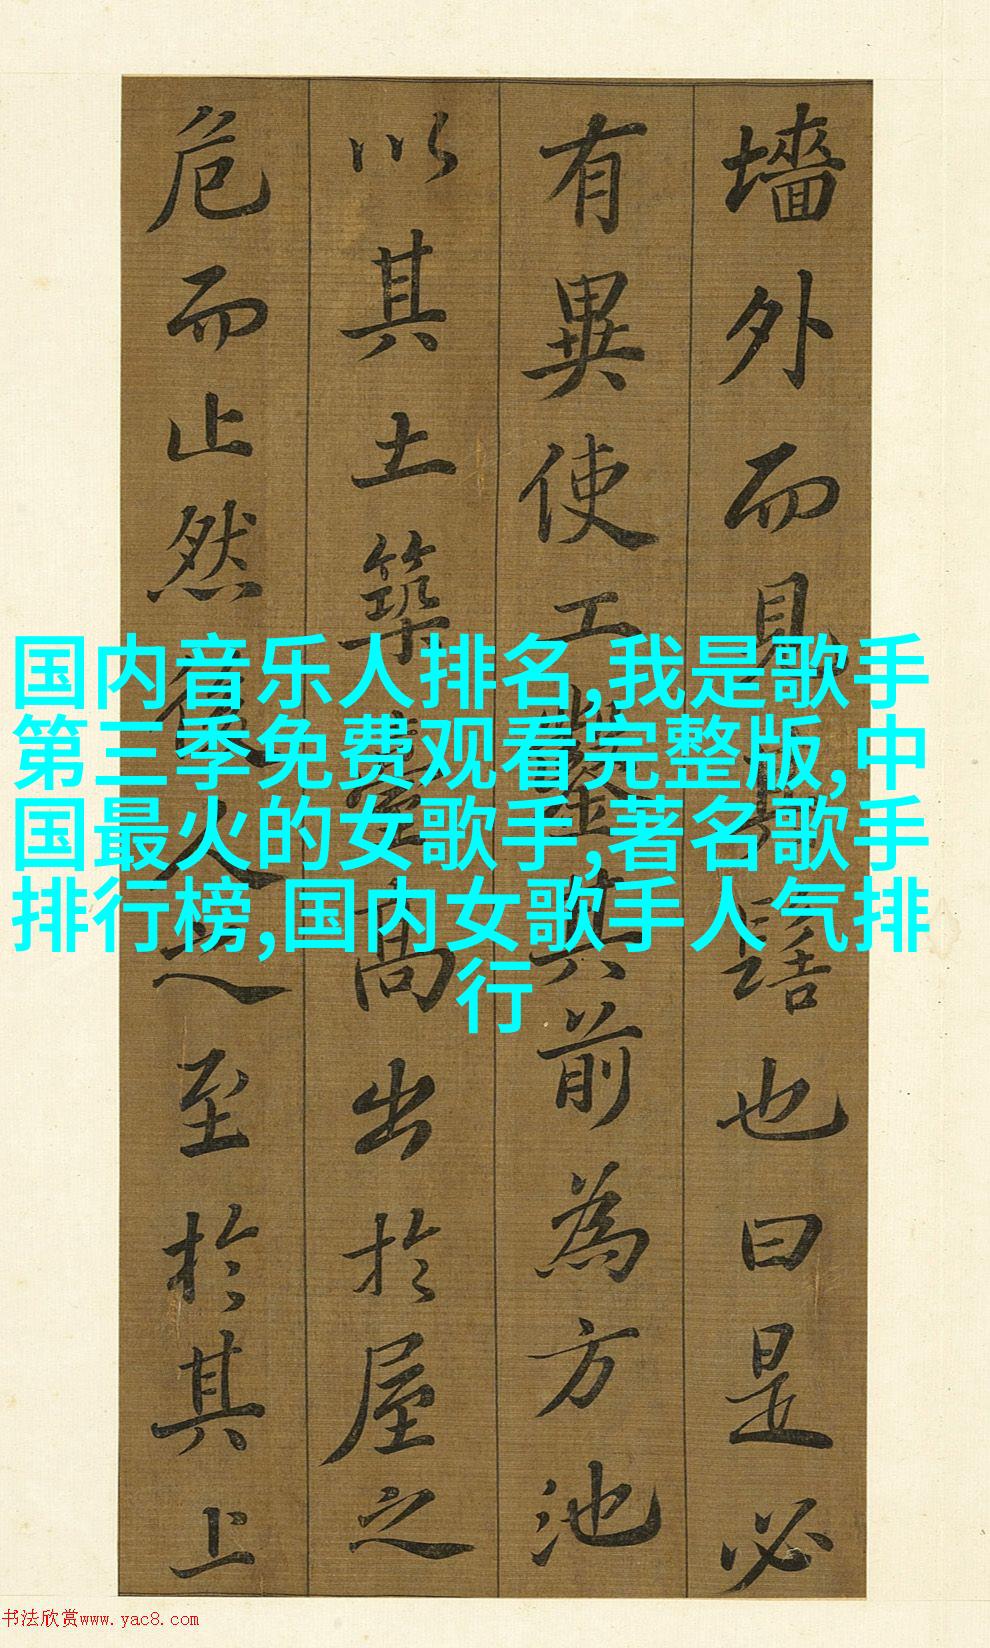 墻外而見其髻也曰是必
有異使工鑿其前為方池
以其土築臺高出於屋之
危而止然後人之至於其上
国内音乐人排名,我是歌手
第三季免费观看完整版,中
国最火的女歌手,著名歌手
排行榜,国内女歌手人气排
行
书法欣赏www.yac8.com